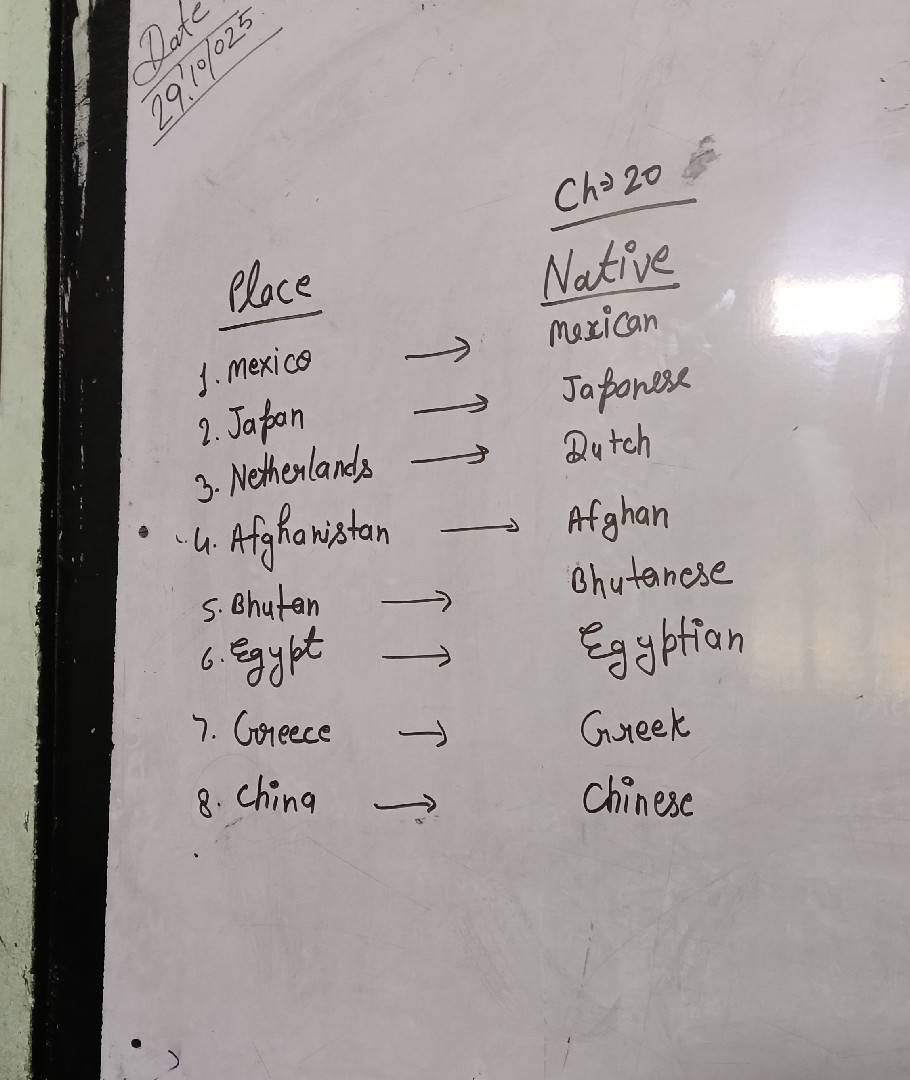 Date
29/10/025
Ch⇒20
Place Native
1. Mexico → Mexican
2. Japan → Japanese
3. Netherlands → Dutch
4. Afghanistan → Afghan
5. Bhutan → Bhutanese
6. Egypt → Egyptian
7. Greece → Greek
8. China → Chinese